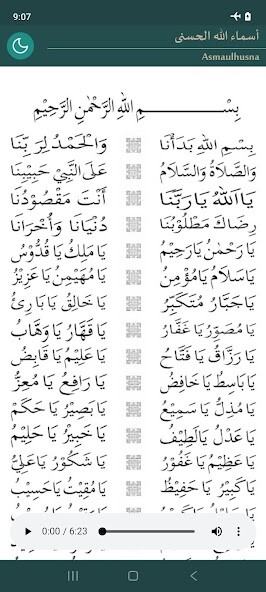 9:07
أسماء الله الحسنى
Asmaulhusna
بِسْمِ اللهِ الرَّحْمٰنِ الرَّحِيْمِ
بِسْمِ اللهِ بَدَأْنَا وَالْحَمْدُ لِرَبِّنَا
وَالصَّلَاةُ وَالسَّلَامُ عَلَى النَّبِيْ حَبِيْبِنَا
يَا اَللهُ يَا رَبَّنَا أَنْتَ مَقْصُوْدُنَا
رِضَاكَ مَطْلُوْبُنَا دُنْيَانَا وَأُخْرَانَا
يَا رَحْمٰنُ يَا رَحِيْمُ يَا مَلِكُ يَا قُدُّوْسُ
يَا سَلَامُ يَا مُؤْمِنُ يَا مُهَيْمِنُ يَا عَزِيْزُ
يَا جَبَّارُ مُتَكَبِّرُ يَا خَالِقُ يَا بَارِئُ
يَا مُصَوِّرُ يَا غَفَّارُ يَا قَهَّارُ يَا وَهَّابُ
يَا رَزَّاقُ يَا فَتَّاحُ يَا عَلِيْمُ يَا قَابِضُ
يَا بَاسِطُ يَا خَافِضُ يَا رَافِعُ يَا مُعِزُّ
يَا مُذِلُّ يَا سَمِيْعُ يَا بَصِيْرُ يَا حَكَمْ
يَا عَدْلُ يَا لَطِيْفُ يَا خَبِيْرُ يَا حَلِيْمُ
يَا عَظِيْمُ يَا غَفُوْرُ يَا شَكُوْرُ يَا عَلِيُّ
يَا كَبِيْرُ يَا حَفِيْظُ يَا مُقِيْتُ يَا حَسِيْبُ
0:00 / 6:23